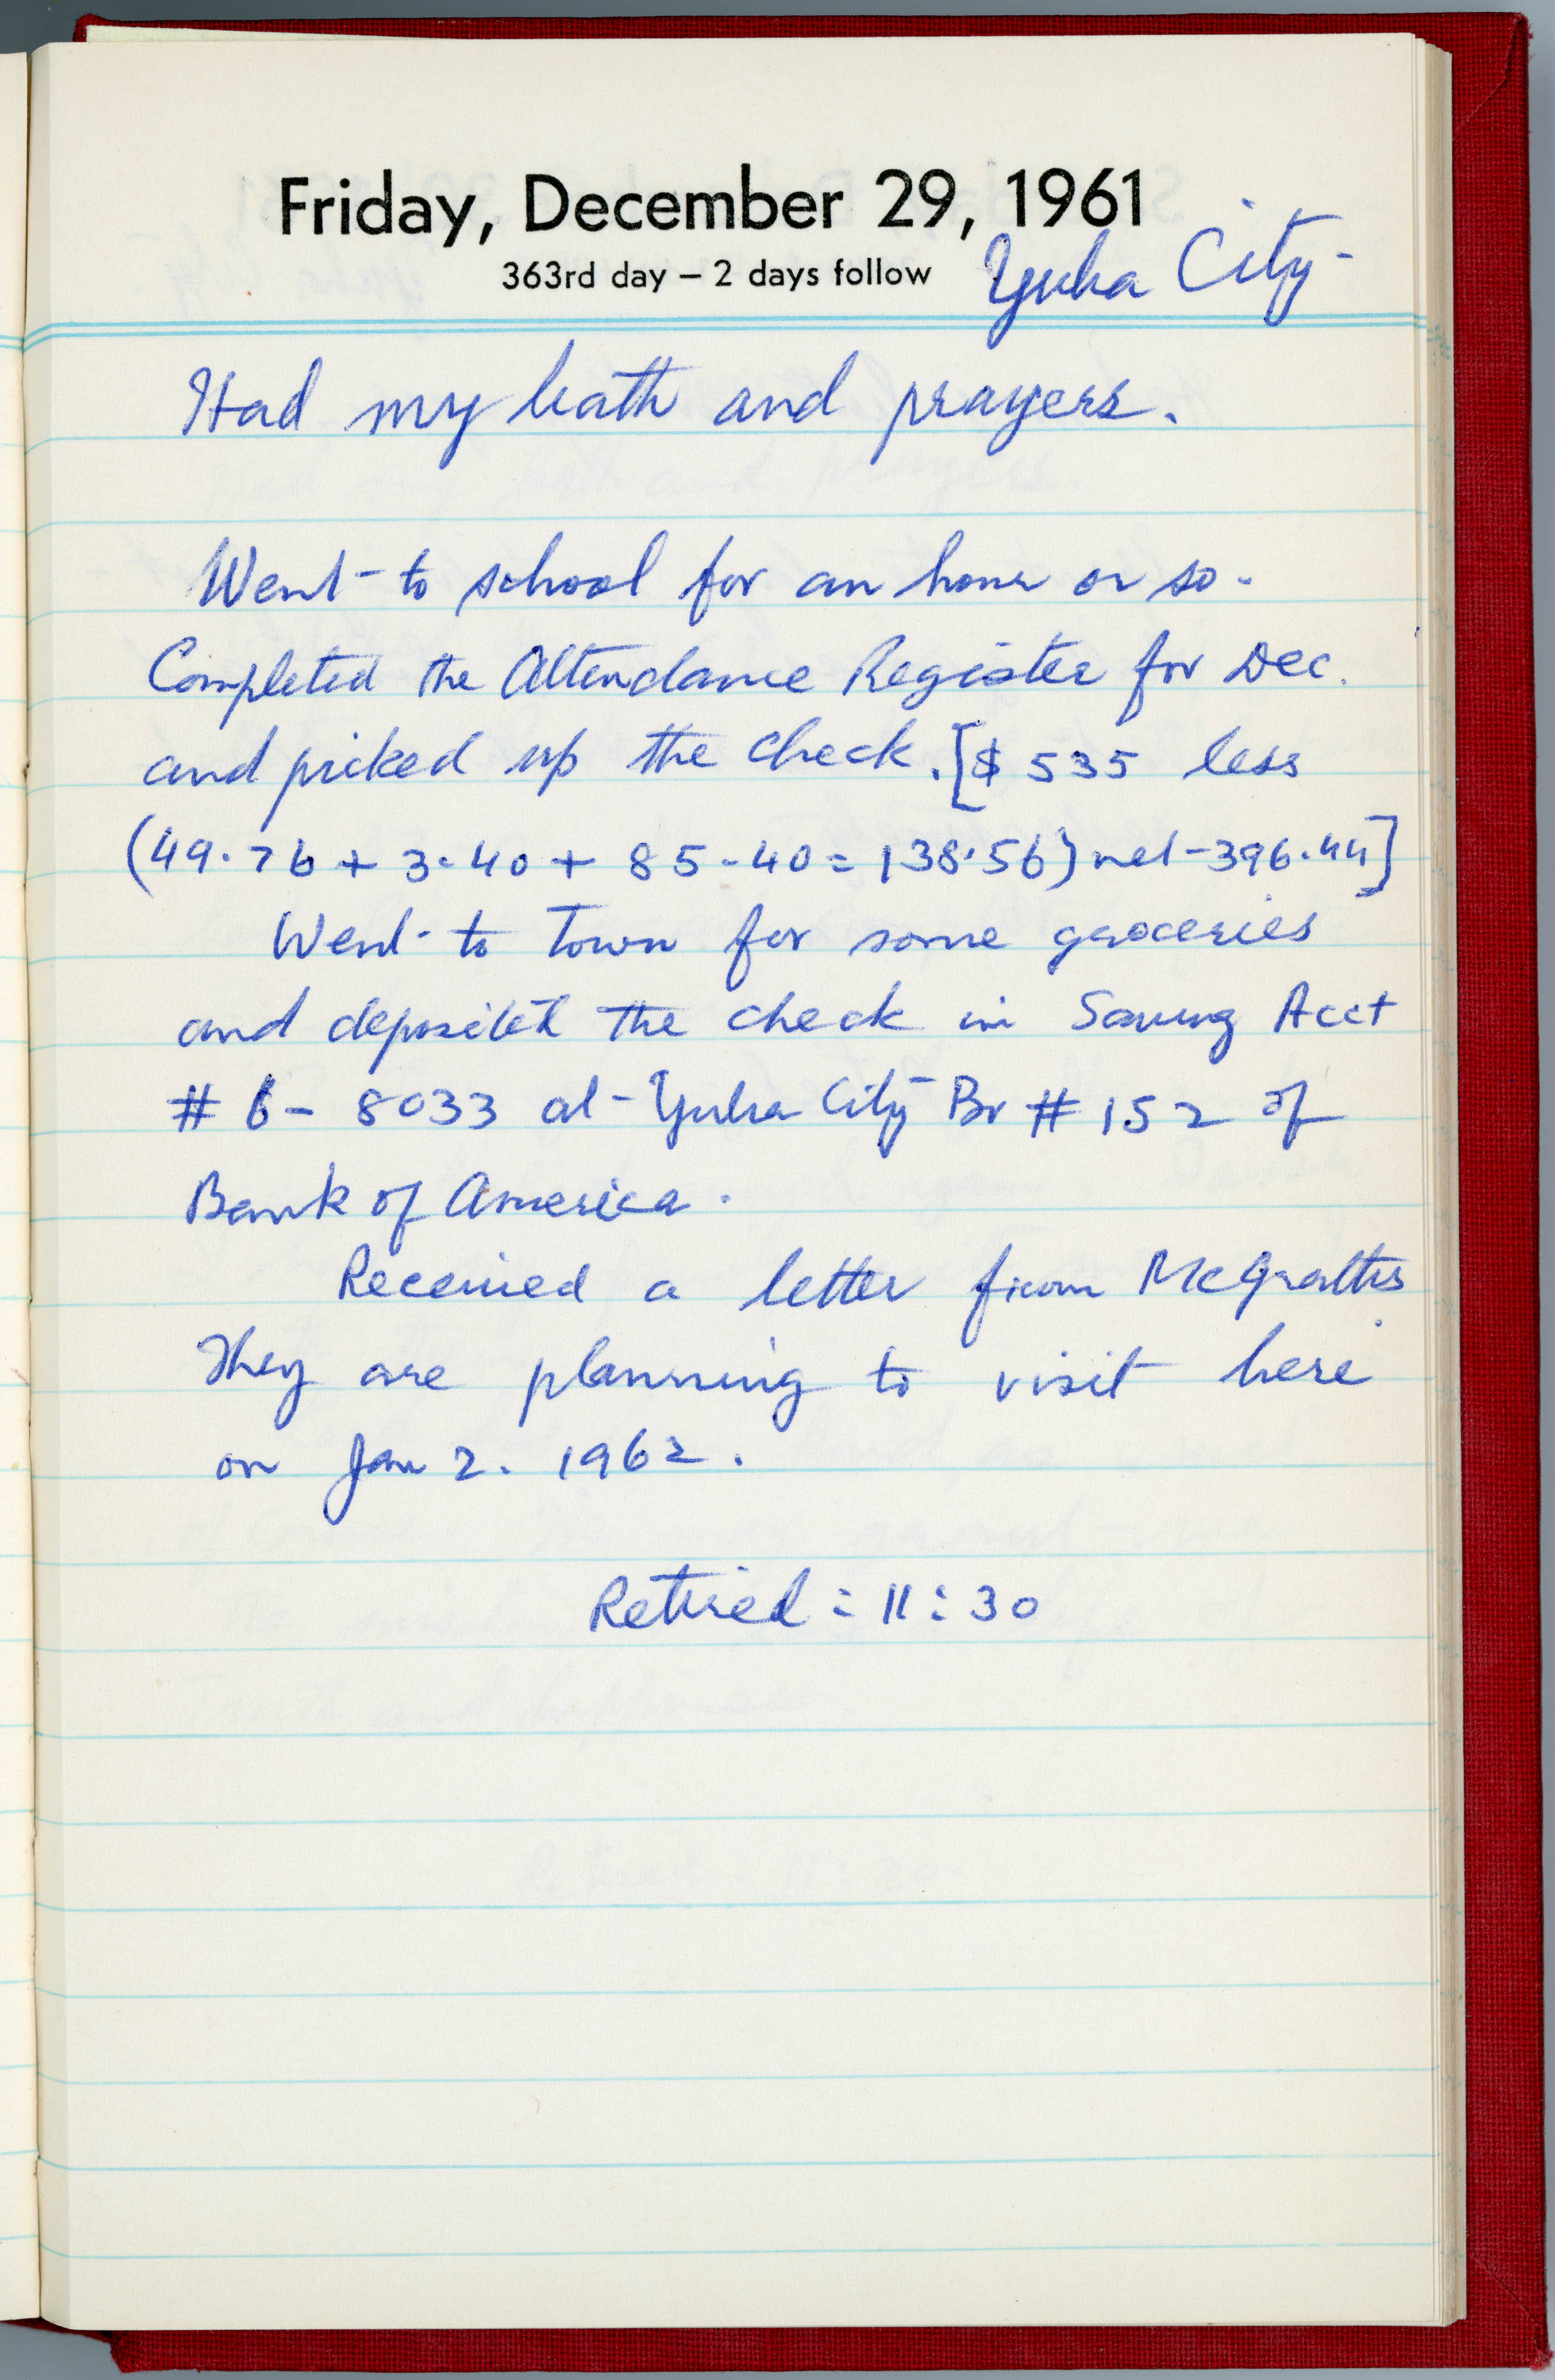 Friday, December 29, 1961
363rd day – 2 days follow Yuba City
Had my bath and prayers.
Went to school for an hour or so.
Completed the Attendance Register for Dec.
and picked up the check. [$ 535 less
(49.76 + 3.40 + 85.40 = 138.56) net 396.44]
Went to Town for some groceries
and deposited the check in Saving Acct
# 6 - 8033 at Yuba City Br # 152 of
Bank of America.
Received a letter from McGraths
They are planning to visit here
on Jan 2. 1962.
Retired : 11:30